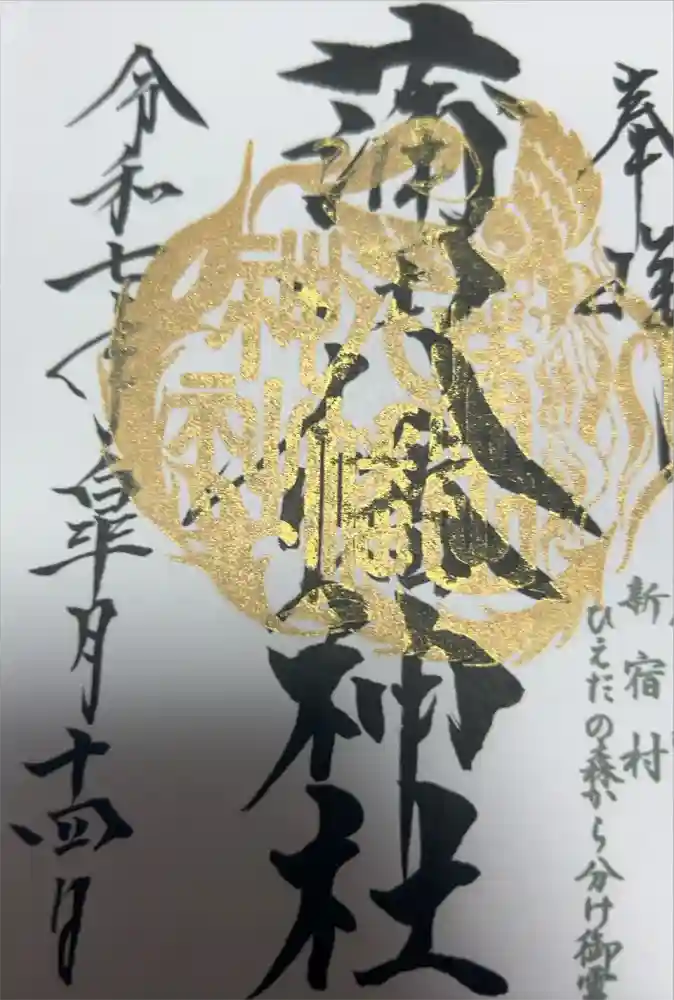 奉拝
新宿村
ひえだの森から分け御霊
蒲田八幡神社
令和七年皐月十四日